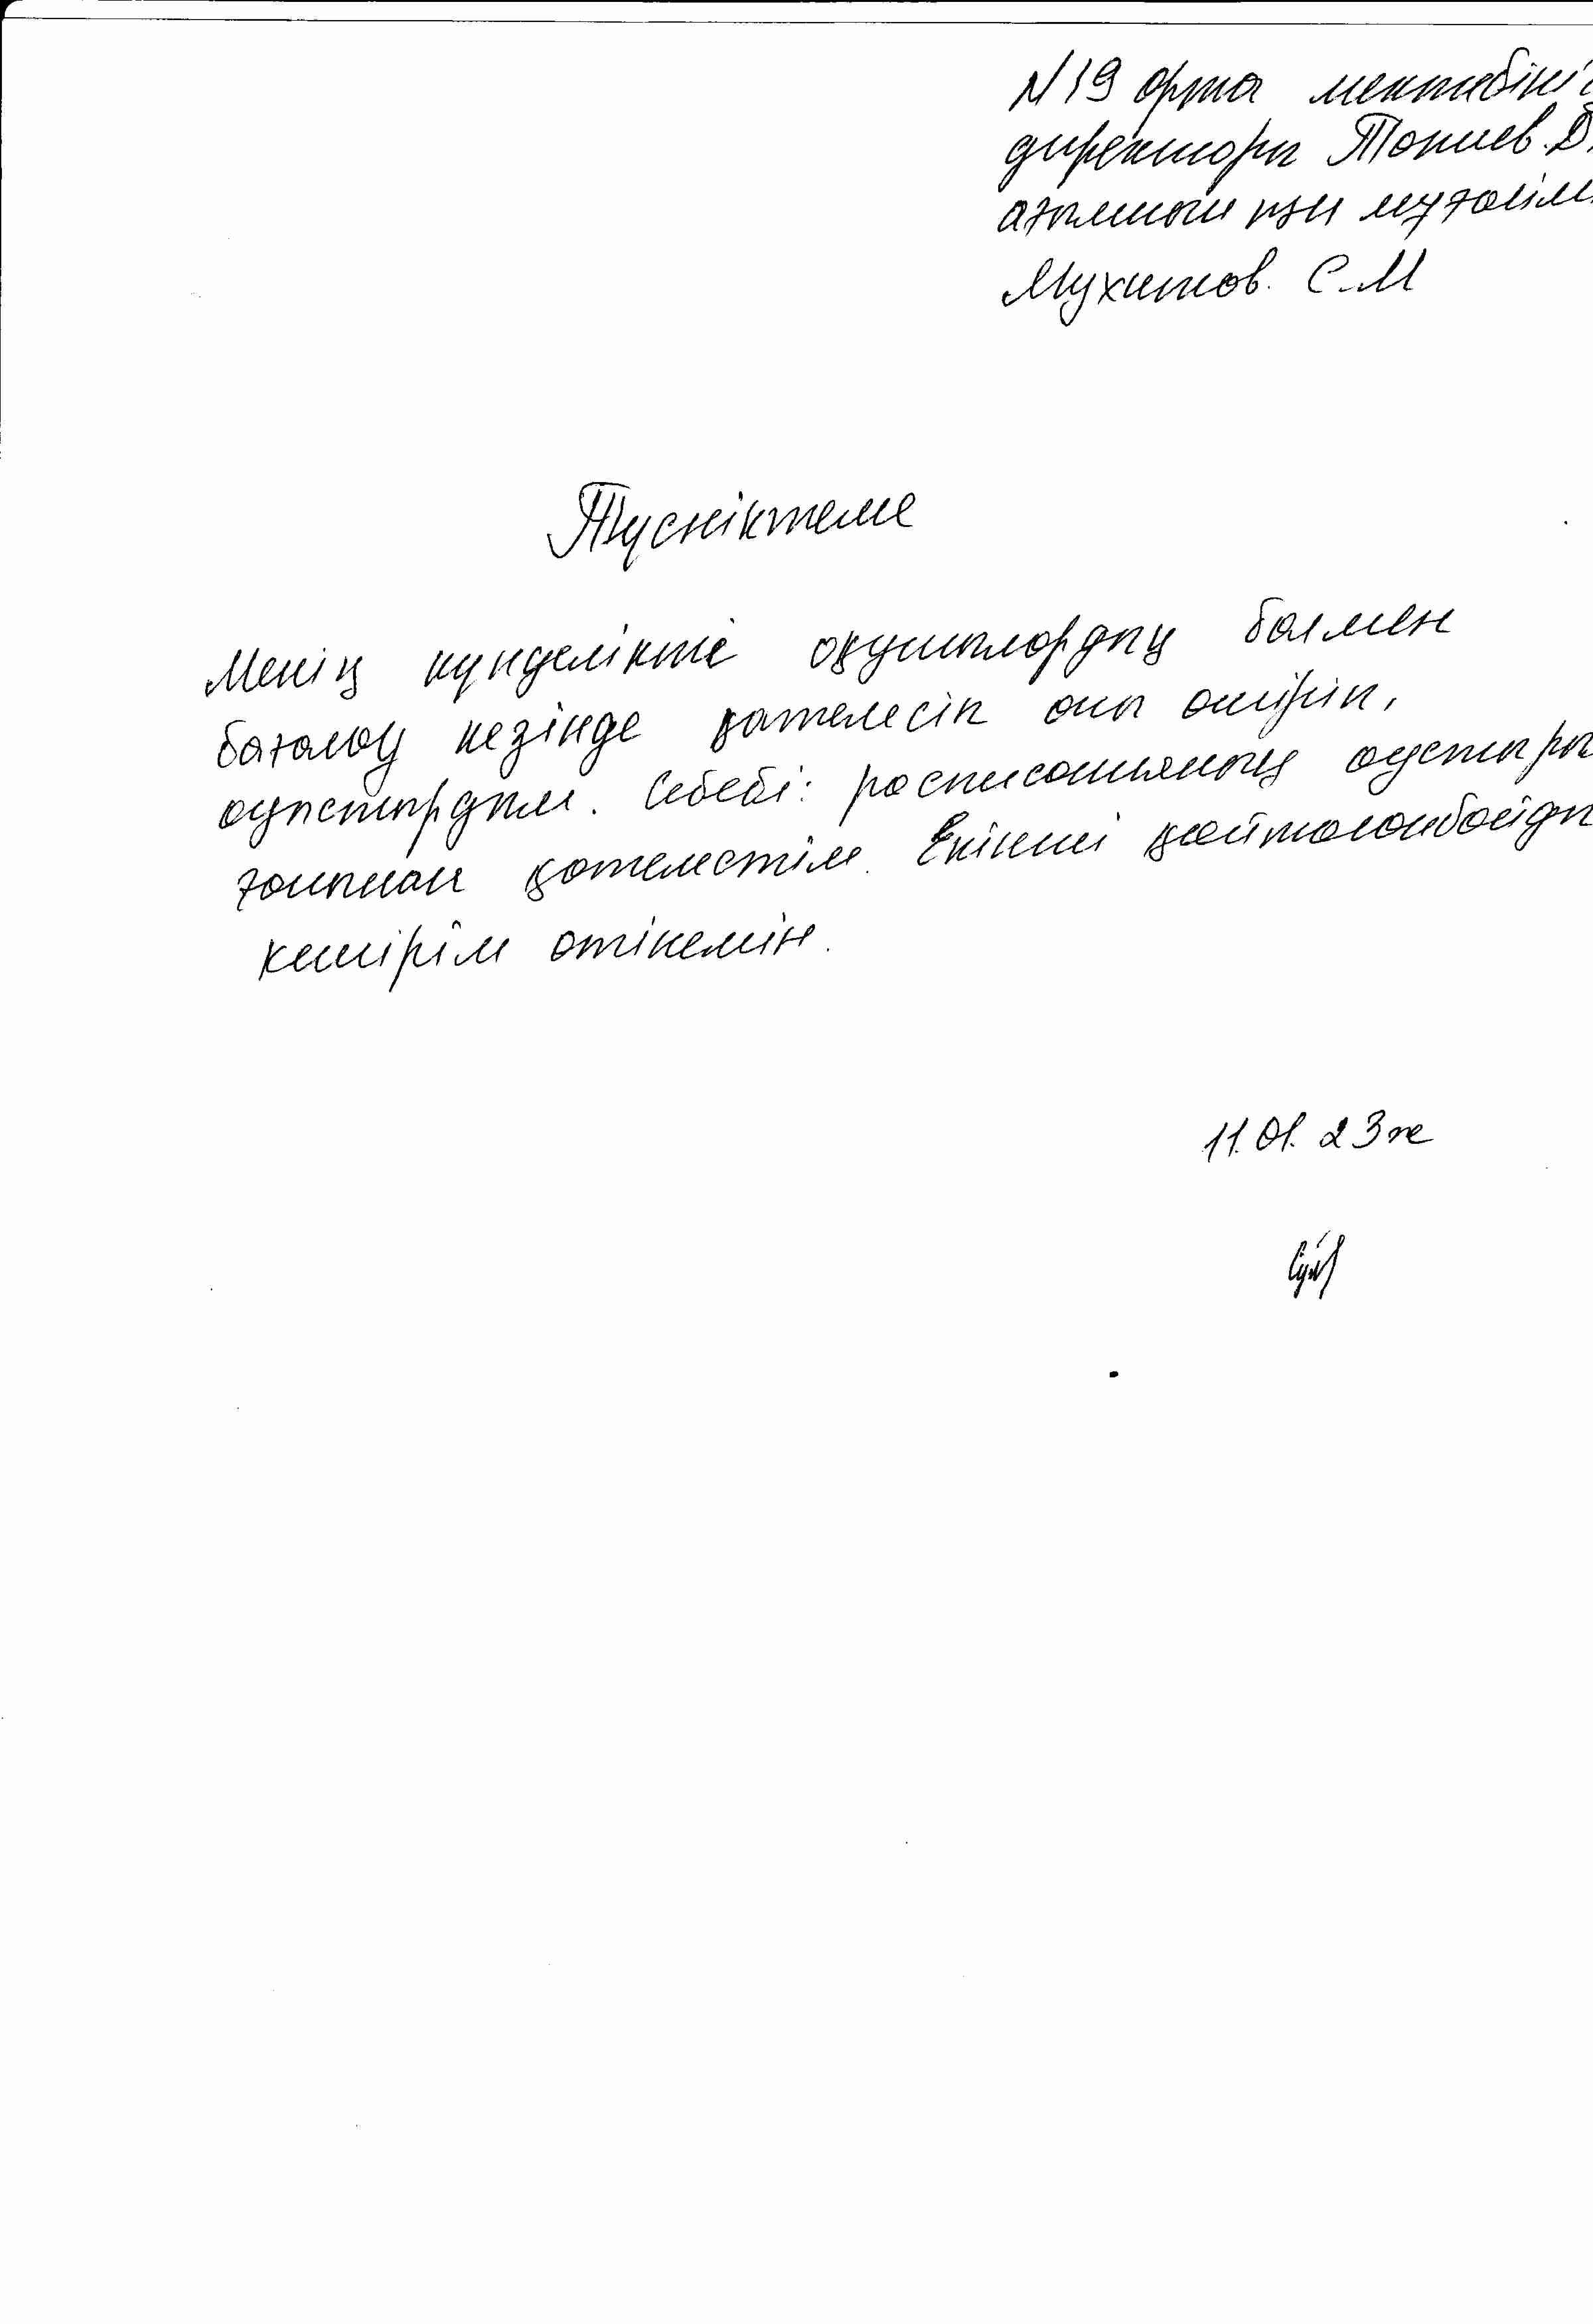 N 19 орта мектебіні
директоры Топиев. Д.
ағылшын пәні мұғалім
Мухитов. С.М
Түсніктеме
Менің күнделікті оқушылордың балмен
бағалоу кезінде қателесіп оны ошіріп,
ауыстырдым. Себебі: росписаниянығ оустыры
ғоннан қателестім. Екінші қойтоланбойды
кешірім отінемін.
11.01.23 ж